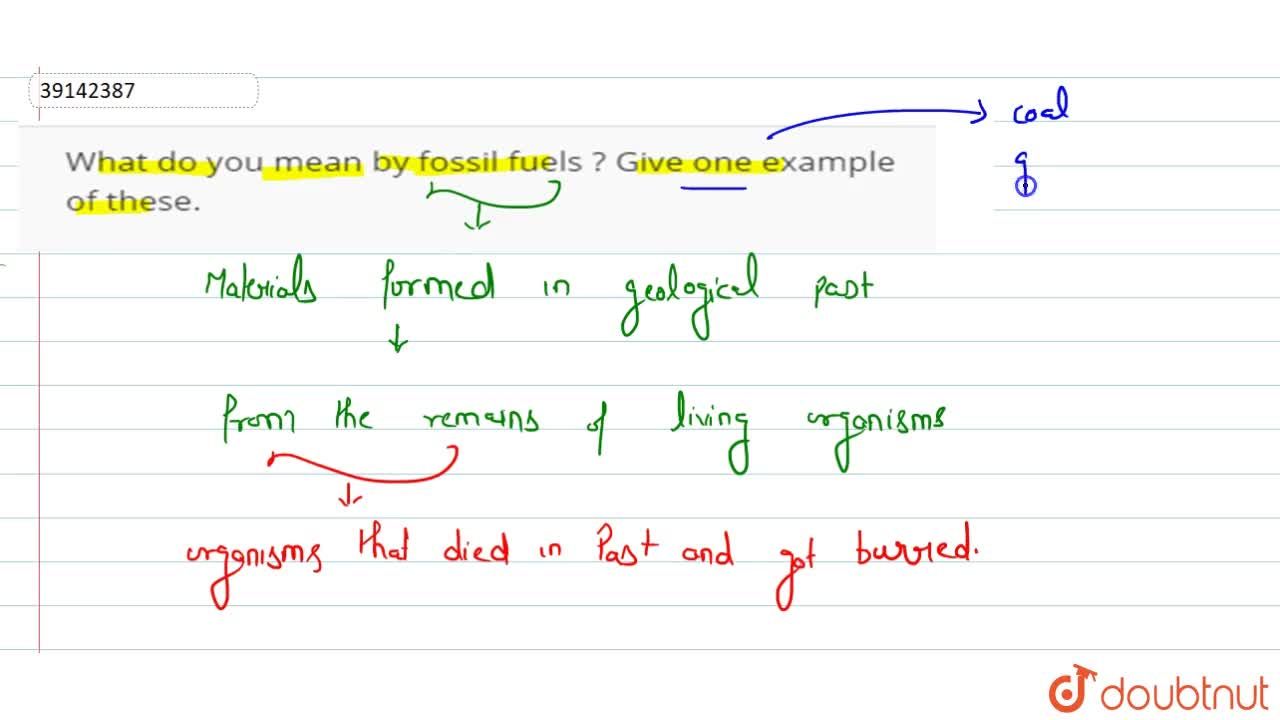 39142387
coal
What do you mean by fossil fuels ? Give one example
of these.
g
Materials formed in geological past
from the remains of living organisms
organisms that died in Past and got burried.
doubtnut